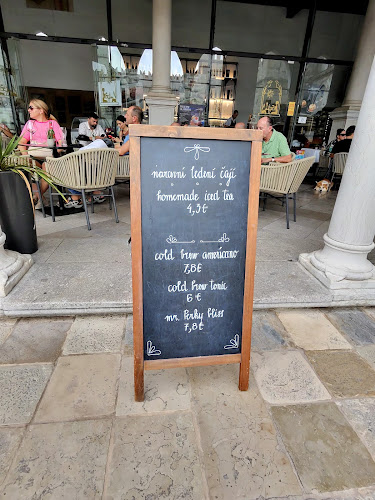 naravni ledeni čaji
homemade iced tea
4,5€
cold brew americano
7,8€
cold brew tonic
6€
mr. Perky bliss
7,8€